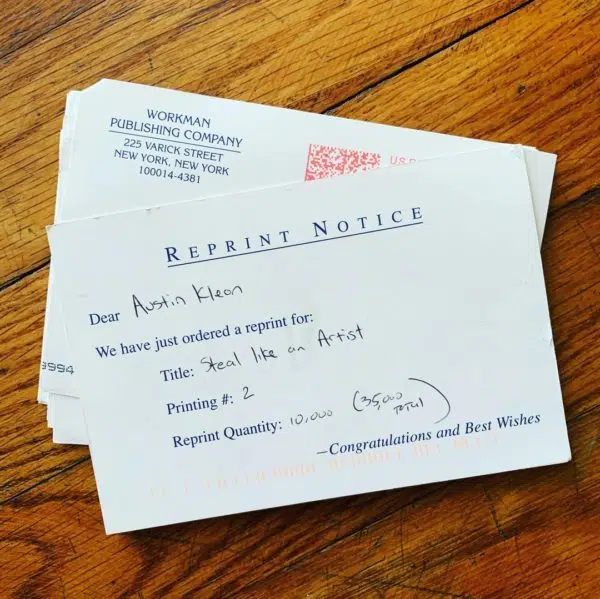 WORKMAN
PUBLISHING COMPANY
225 VARICK STREET
NEW YORK, NEW YORK
100014-4381
REPRINT NOTICE
Dear Austin Kleon
We have just ordered a reprint for:
Title: Steal like an Artist
Printing #: 2
Reprint Quantity: 10,000 (35,000 TOTAL)
—Congratulations and Best Wishes
9994